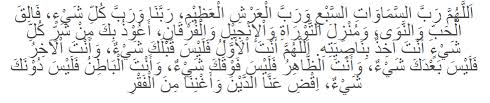 اَللَّهُمَّ رَبَّ السَّمَاوَاتِ السَّبْعِ وَرَبَّ الْعَرْشِ الْعَظِيْمِ، رَبَّنَا وَرَبَّ كُلِّ شَيْءٍ، فَالِقَ
الْحَبِّ وَالنَّوَى، وَمُنْزِلَ التَّوْرَاةِ وَالْإِنْجِيْلِ وَالْفُرْقَانِ، أَعُوْذُ بِكَ مِنْ شَرِّ كُلِّ
شَيْءٍ أَنْتَ آخِذٌ بِنَاصِيَتِهِ. اَللَّهُمَّ أَنْتَ الْأَوَّلُ فَلَيْسَ قَبْلَكَ شَيْءٌ، وَأَنْتَ الْآخِرُ
فَلَيْسَ بَعْدَكَ شَيْءٌ، وَأَنْتَ الظَّاهِرُ فَلَيْسَ فَوْقَكَ شَيْءٌ، وَأَنْتَ الْبَاطِنُ فَلَيْسَ دُوْنَكَ
شَيْءٌ، اِقْضِ عَنَّا الدَّيْنَ وَأَغْنِنَا مِنَ الْفَقْرِ